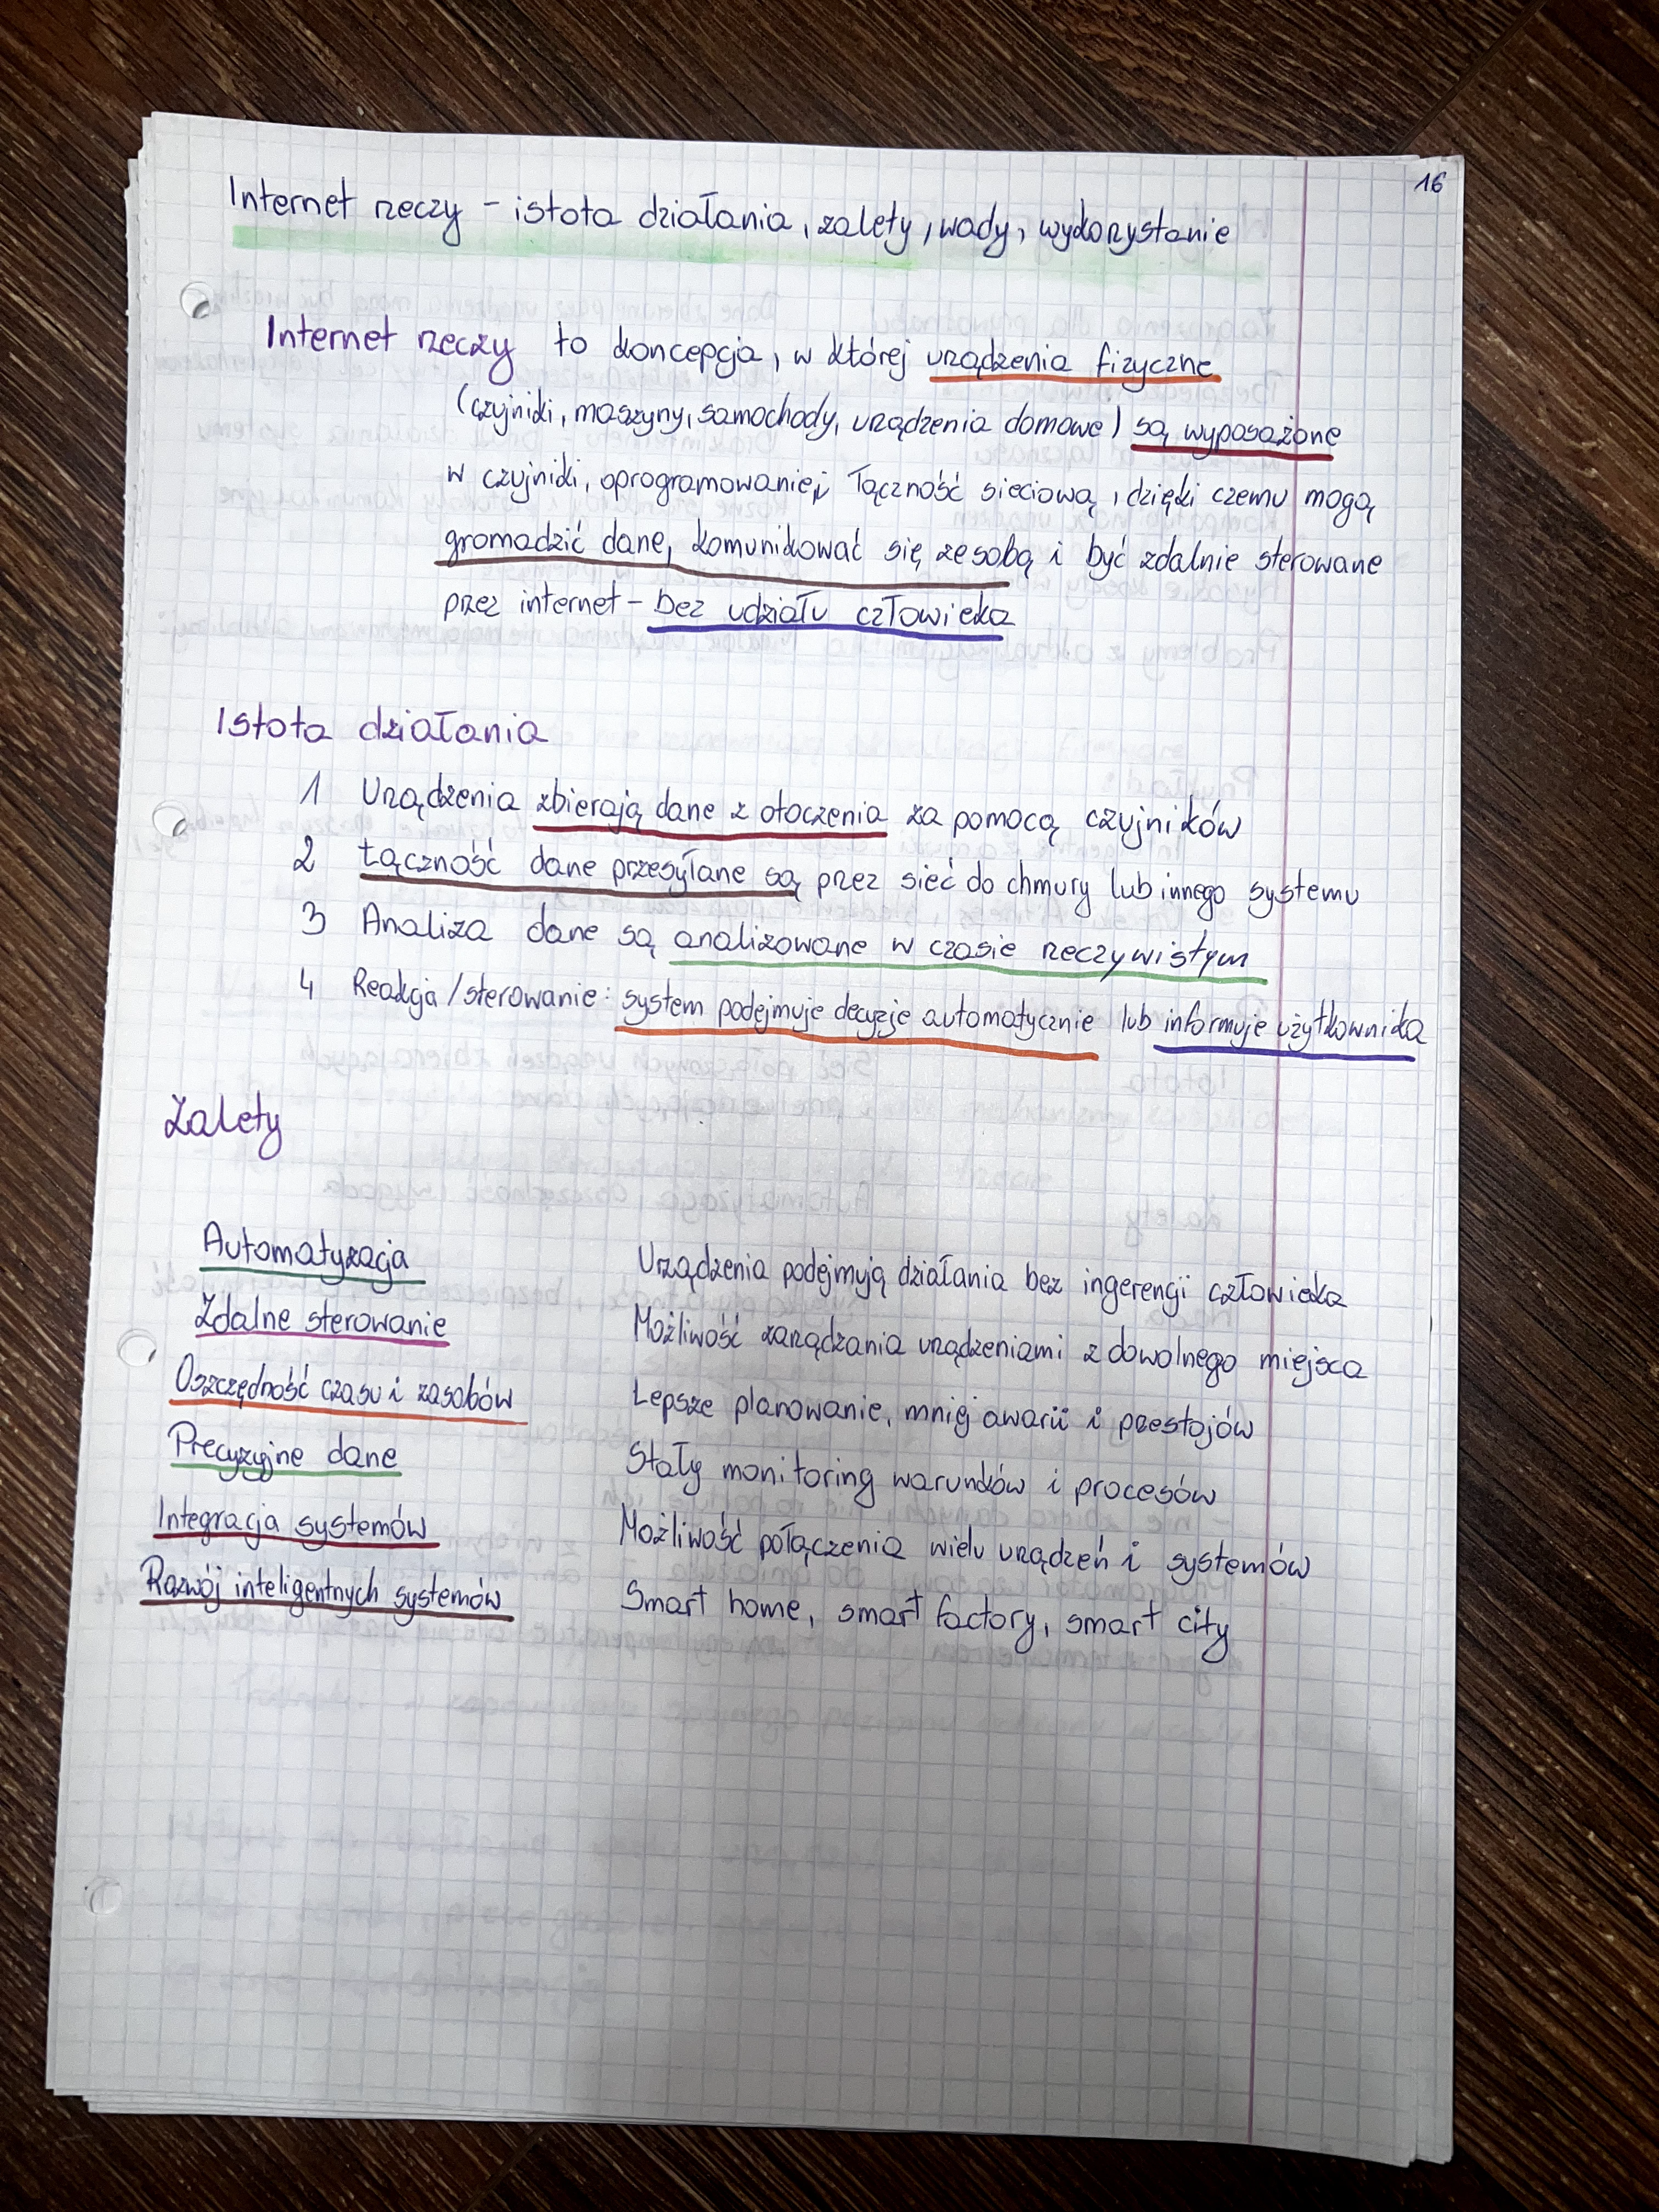 16
Internet rzeczy - istota działania, zalety, wady, wykorzystanie
Internet rzeczy to koncepcja, w której urządzenia fizyczne
(czyjniki, maszyny, samochody, urządzenia domowe) są wyposażone
w czyjniki, oprogramowanie i łączność sieciową, dzięki czemu mogą
gromadzić dane, komunikować się ze sobą i być zdalnie sterowane
przez internet - bez udziału człowieka
Istota działania
1 Urządzenia zbierają dane z otoczenia za pomocą czyjników
2 Łączność dane przesyłane są przez sieć do chmury lub innego systemu
3 Analiza dane są analizowane w czasie rzeczywistym
4 Reakcja/sterowanie: system podejmuje decyzje automatycznie lub informuje użytkownika
Zalety
Automatyzacja Urządzenia podejmują działania bez ingerencji człowieka
Zdalne sterowanie Możliwość zarządzania urządzeniami z dowolnego miejsca
Oszczędność czasu i zasobów Lepsze planowanie, mniej awarii i przestojów
Precyzyjne dane Stały monitoring warunków i procesów
Integracja systemów Możliwość połączenia wielu urządzeń i systemów
Rozwój inteligentnych systemów Smart home, smart factory, smart city